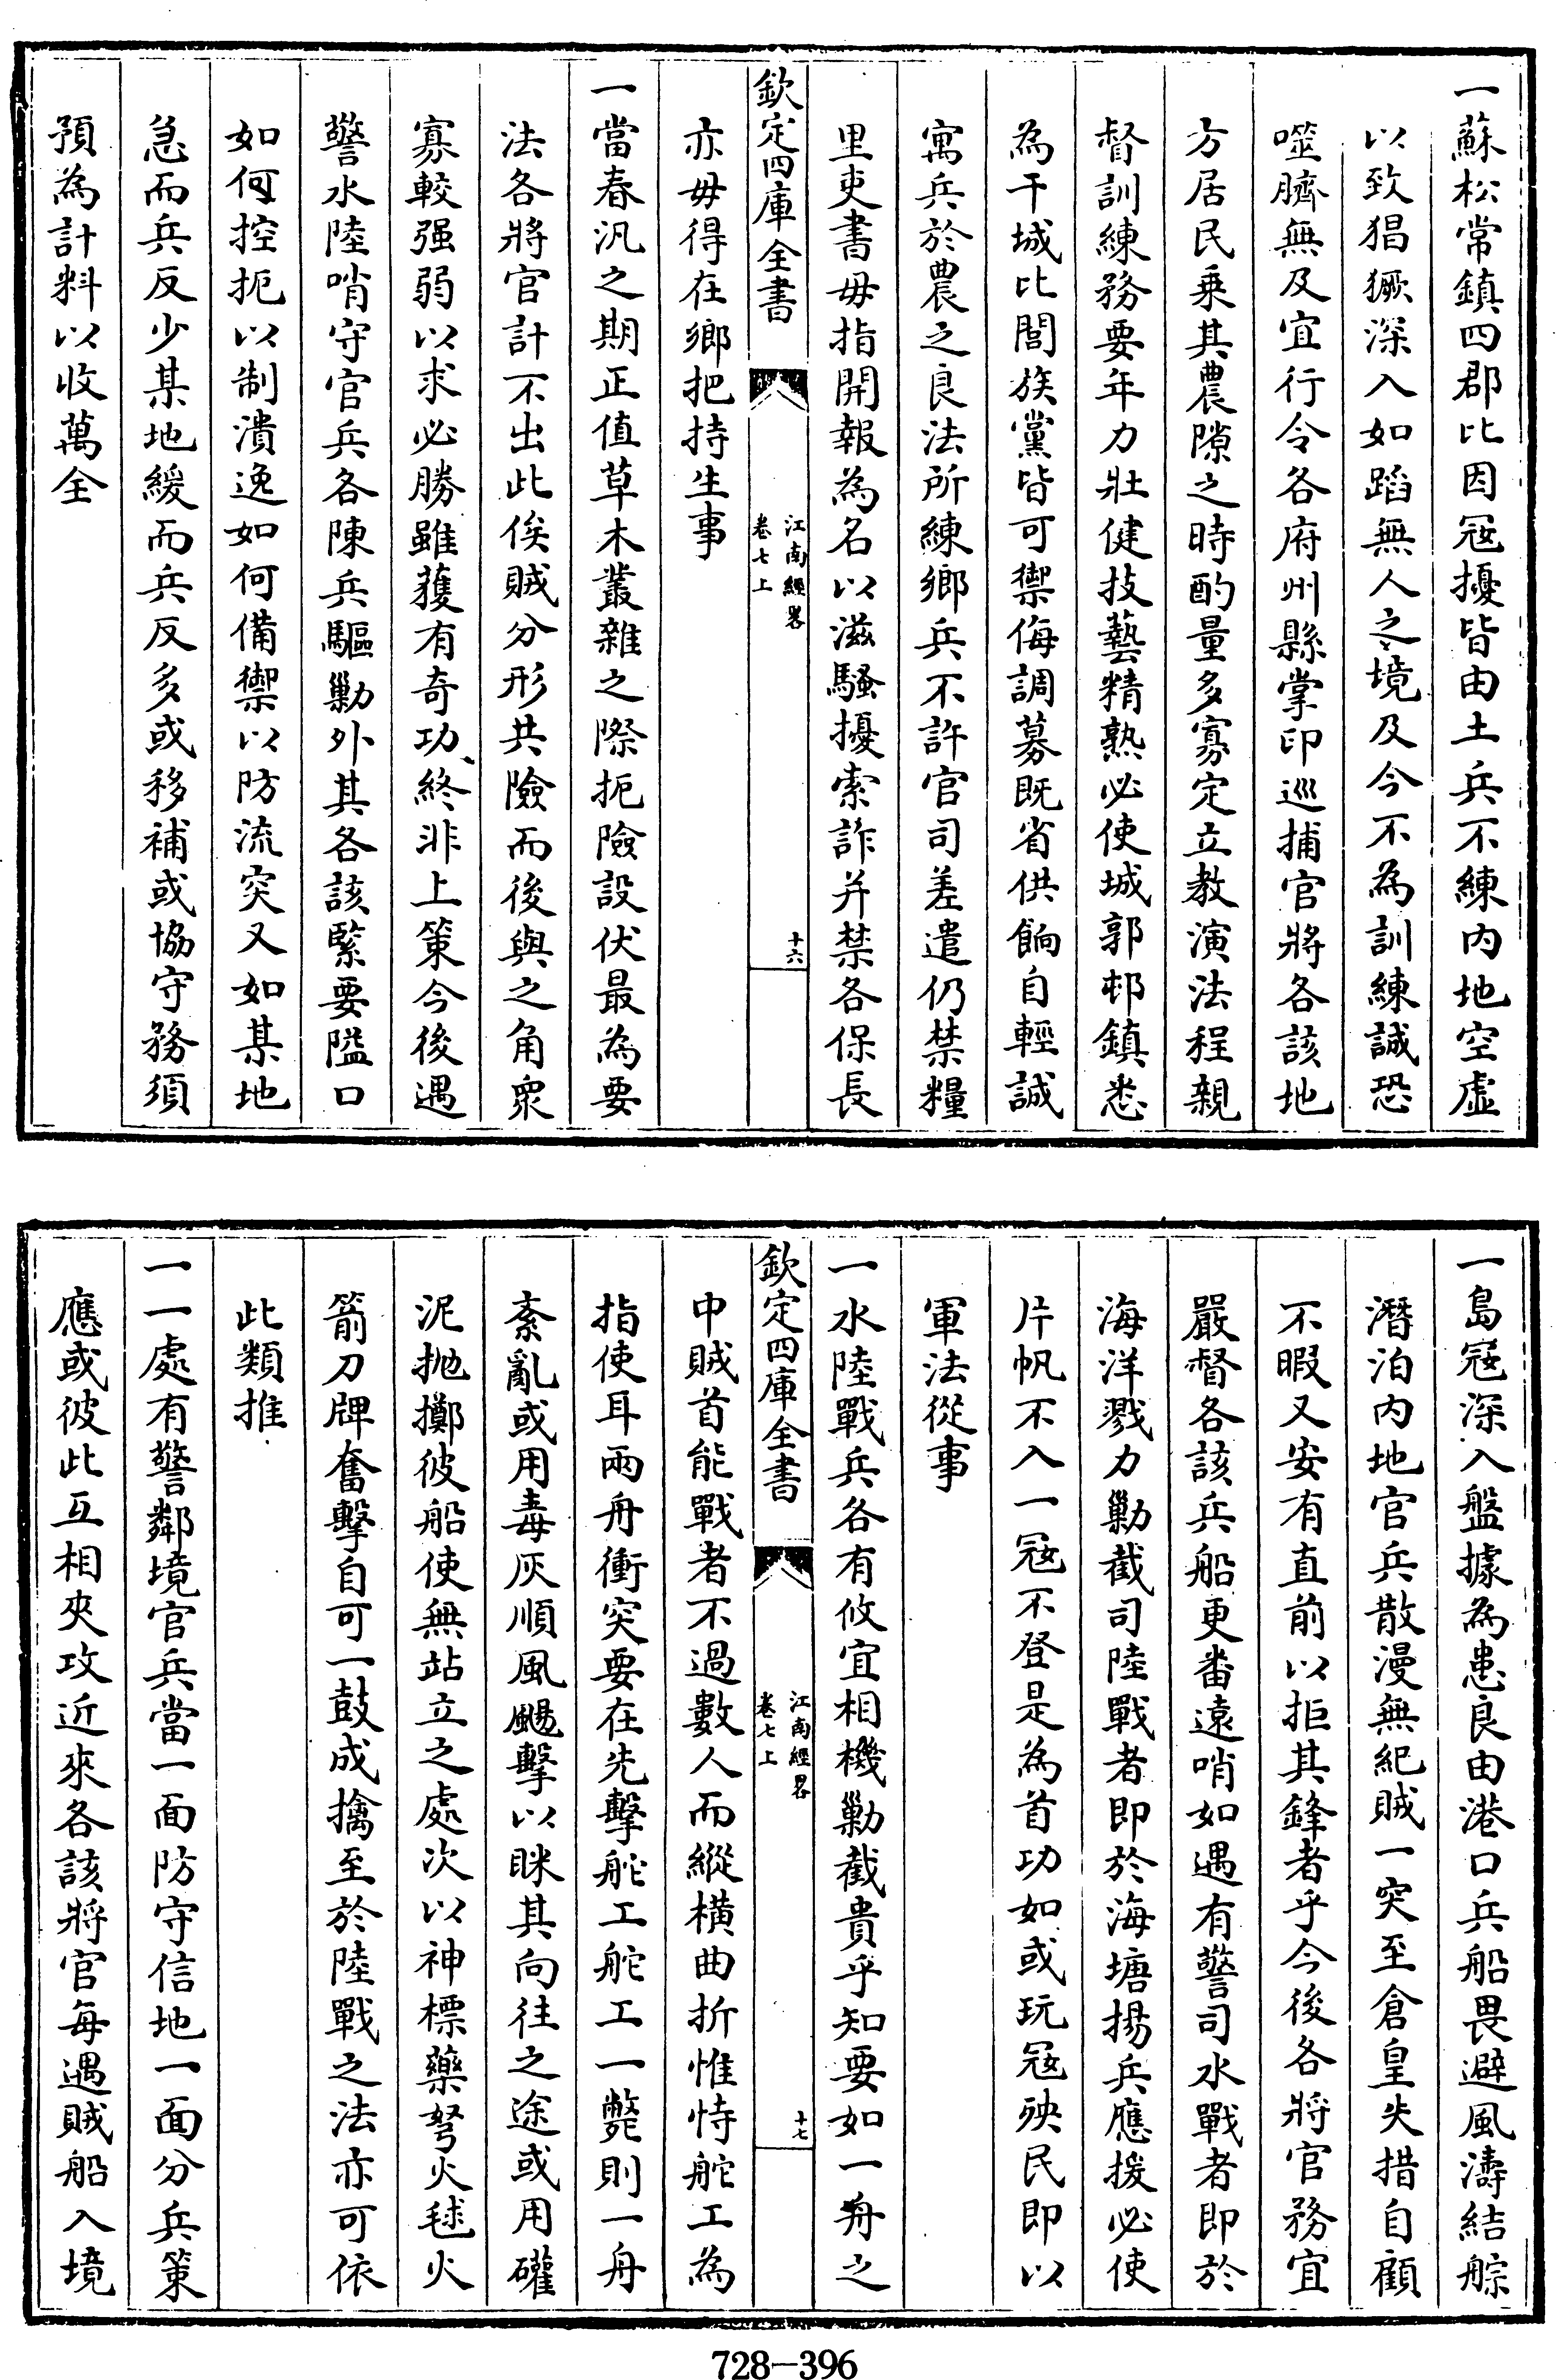 一蘇松常鎮四郡比因冦擾皆由土兵不練内地空虛
以致猖獗深入如蹈無人之境及今不為訓練誠恐
噬臍無及宜行令各府州縣掌印巡捕官將各該地
方居民乗其農隙之時酌量多寡定立教演法程親
督訓練務要年力壯健技藝精熟必使城郭邨鎮悉
為干城比閭族黨皆可禦侮調募既省供餉自輕誠
寓兵於農之良法所練鄉兵不許官司差遣仍禁糧
里吏書毋指開報為名以滋騷擾索詐并禁各保長
欽定四庫全書
江南經畧
卷七上
十六
亦毋得在鄉把持生事
一當春汛之期正值草木叢雜之際扼險設伏最為要
法各將官計不出此俟賊分形共險而後與之角衆
寡較强弱以求必勝雖獲有奇功終非上策今後遇
警水陸哨守官兵各陳兵驅勦外其各該緊要隘口
如何控扼以制潰逸如何備禦以防流突又如某地
急而兵反少某地緩而兵反多或移補或協守務須
預為計料以收萬全
一島冦深入盤據為患良由港口兵船畏避風濤結䑸
潛泊内地官兵散漫無紀賊一突至倉皇失措自顧
不暇又安有直前以拒其鋒者乎今後各將官務宜
嚴督各該兵船更番遠哨如遇有警司水戰者即於
海洋戮力勦截司陸戰者即於海塘揚兵應援必使
片帆不入一冦不登是為首功如或玩冦殃民即以
軍法從事
一水陸戰兵各有攸宜相機勦截貴乎知要如一舟之
欽定四庫全書
江南經畧
卷七上
十七
中賊首能戰者不過數人而縱横曲折惟恃舵工為
指使耳兩舟衝突要在先擊舵工舵工一斃則一舟
紊亂或用毒灰順風颺擊以眯其向往之途或用礶
泥抛擲彼船使無站立之處次以神標藥弩火毬火
箭刀牌奮擊自可一鼓成擒至於陸戰之法亦可依
此類推
一一處有警鄰境官兵當一面防守信地一面分兵策
應或彼此互相夾攻近來各該將官每遇賊船入境
728-396